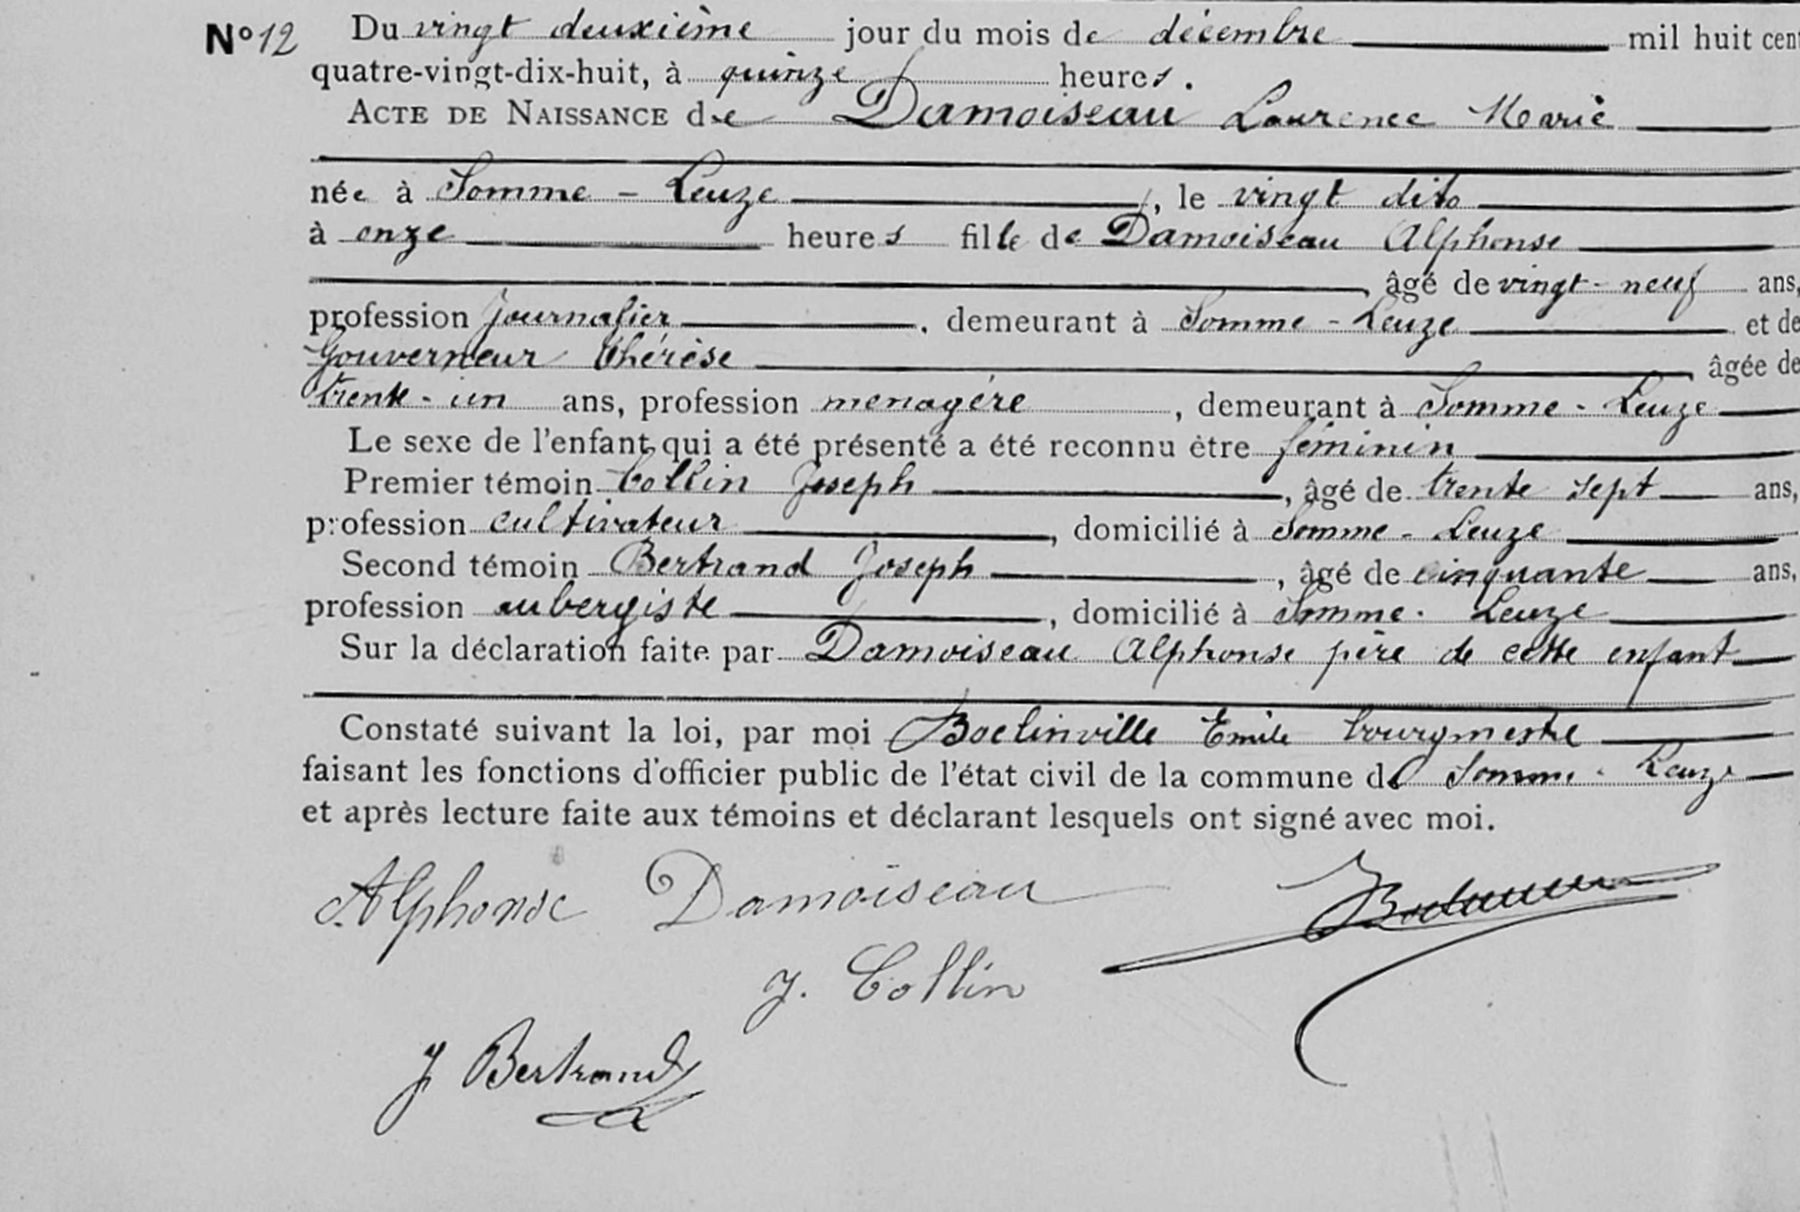 N° 12 Du vingt deuxième jour du mois de décembre mil huit cent
quatre-vingt-dix-huit, à quinze heures.
ACTE DE NAISSANCE de Damoiseau Laurence Marie
née à Somme-Leuze, le vingt dito
à onze heures fille de Damoiseau Alphonse
âgé de vingt-neuf ans,
profession journalier, demeurant à Somme-Leuze et de
Gouverneur Thérèse âgée de
trente-un ans, profession menagère, demeurant à Somme-Leuze
Le sexe de l'enfant qui a été présenté a été reconnu être féminin
Premier témoin Collin Joseph, âgé de trente sept ans,
profession cultivateur, domicilié à Somme-Leuze
Second témoin Bertrand Joseph, âgé de cinquante ans,
profession aubergiste, domicilié à Somme-Leuze
Sur la déclaration faite par Damoiseau Alphonse père de cette enfant
Constaté suivant la loi, par moi Boclinville Emile bourgmestre
faisant les fonctions d'officier public de l'état civil de la commune de Somme-Leuze
et après lecture faite aux témoins et déclarant lesquels ont signé avec moi.
Alphonse Damoiseau
J. Collin
J Bertrand